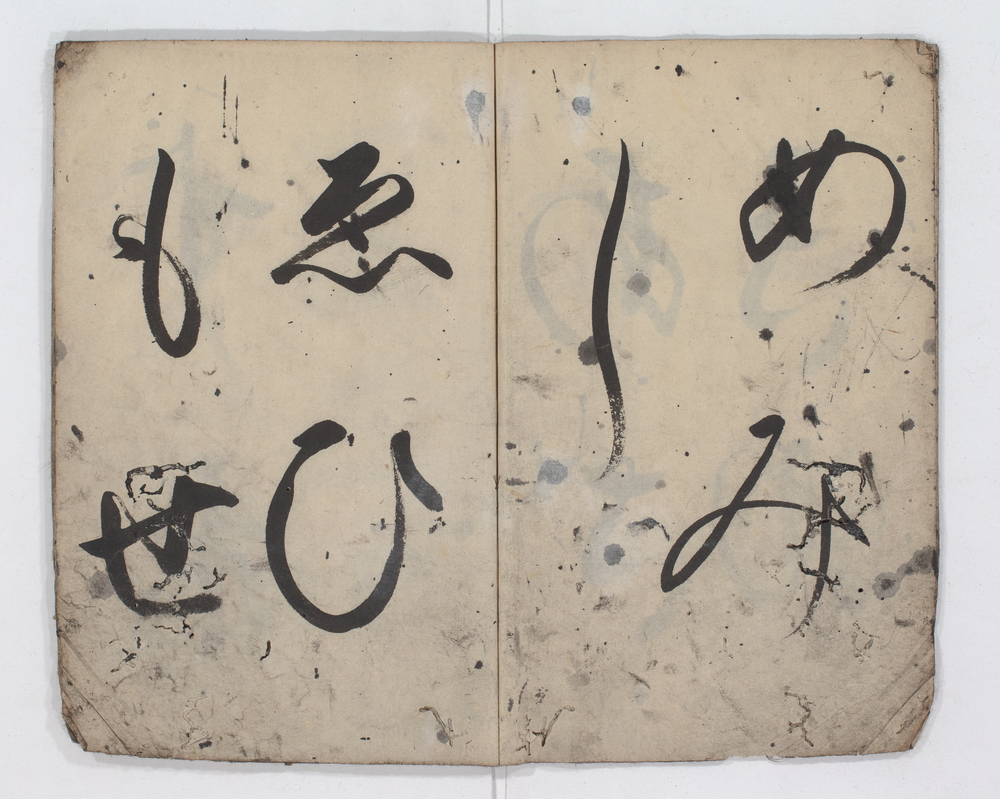 めみ
し
ゑひ
もせ